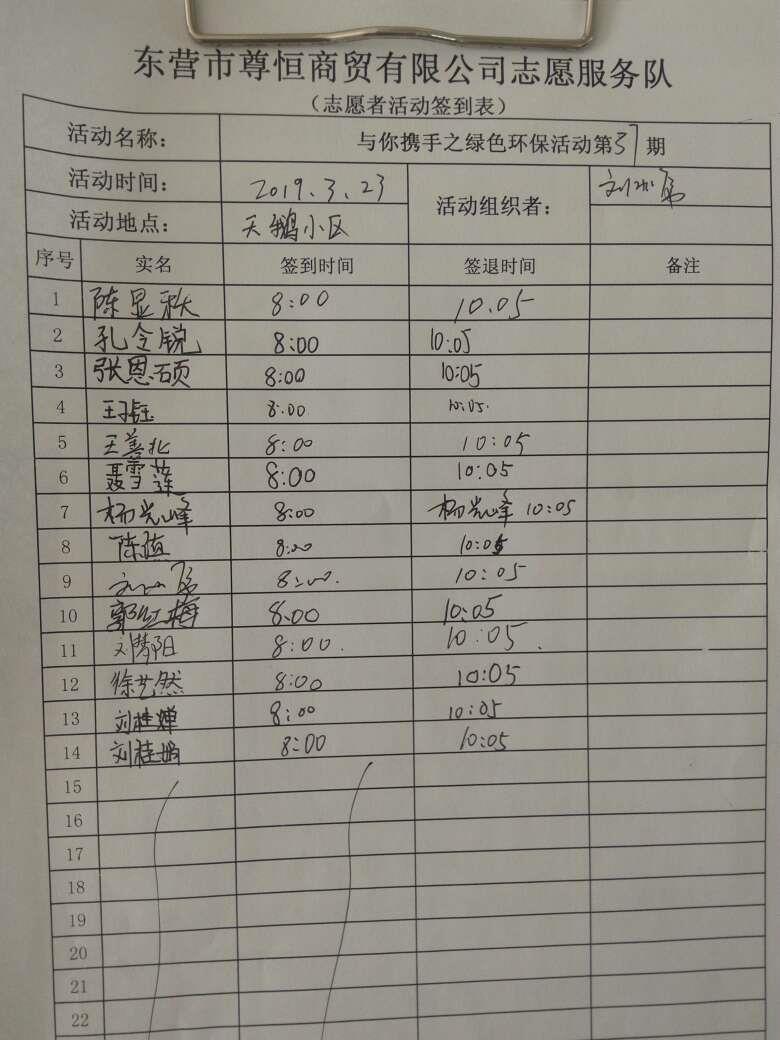 东营市尊恒商贸有限公司志愿服务队
（志愿者活动签到表）
活动名称： 与你携手之绿色环保活动第37期
活动时间： 2019.3.23 活动组织者：
活动地点： 天鹅小区
序号 实名 签到时间 签退时间 备注
1 陈显秋 8:00 10.05
2 孔令锐 8:00 10:05
3 张恩硕 8:00 10:05
4 8:00 10:05.
5 王善北 8:00 10:05
6 聂雪莲 8:00 10:05
7 杨光峰 8:00 杨光峰 10:05
8 8:00 10:05
9 8:00. 10:05
10 郭红梅 8:00 10:05
11 刘梦阳 8:00. 10:05.
12 徐艺然 8:00 10:05
13 刘桂婵 8:00 10:05
14 刘桂娟 8:00 10:05
15
16
17
18
19
20
21
22